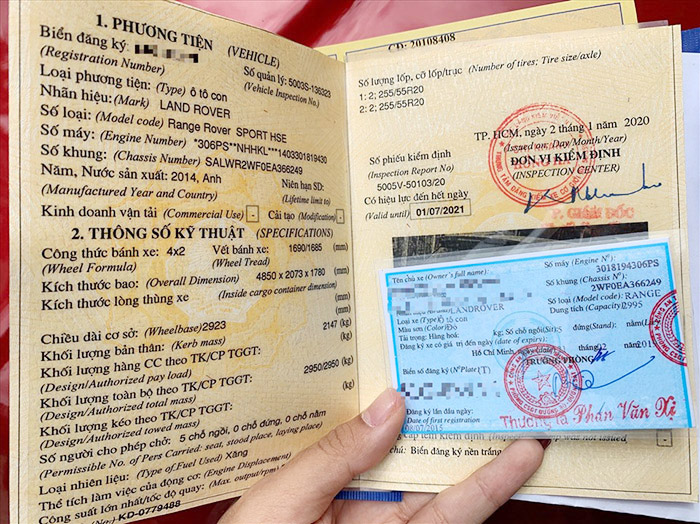 1. PHƯƠNG TIỆN (VEHICLE)
Biển đăng ký:
(Registration Number) Số quản lý: 5003S-136323
Loại phương tiện: (Type) ô tô con (Vehicle Inspection No.)
Nhãn hiệu: (Mark) LAND ROVER
Số loại: (Model code) Range Rover SPORT HSE
Số máy: (Engine Number) *306PS**NHHKL***1403301819430
Số khung: (Chassis Number) SALWR2WF0EA366249
Năm, Nước sản xuất: 2014, Anh Niên hạn SD:
(Manufactured Year and Country) (Lifetime limit to)
Kinh doanh vận tải (Commercial Use) - Cải tạo (Modification) -
2. THÔNG SỐ KỸ THUẬT (SPECIFICATIONS)
Công thức bánh xe: 4x2 Vết bánh xe: 1690/1685 (mm)
(Wheel Formula) (Wheel Tread)
Kích thước bao: (Overall Dimension) 4850 x 2073 x 1780 (mm)
Kích thước lòng thùng xe (Inside cargo container dimension)
(mm)
Chiều dài cơ sở: (Wheelbase) 2923 (mm)
Khối lượng bản thân: (Kerb mass) 2147 (kg)
Khối lượng hàng CC theo TK/CP TGGT:
(Design/Authorized pay load) (kg)
Khối lượng toàn bộ theo TK/CP TGGT: 2950/2950 (kg)
(Design/Authorized total mass)
Khối lượng kéo theo TK/CP TGGT: (kg)
(Design/Authorized towed mass)
Số người cho phép chở: 5 chỗ ngồi, 0 chỗ đứng, 0 chỗ nằm
(Permissible No. of Pers Carried: seat, stood place, laying place)
Loại nhiên liệu: (Type of Fuel Used) Xăng
Thể tích làm việc của động cơ: (Engine Displacement)
Công suất lớn nhất/tốc độ quay: (Max. output/rpm)
KD-0779488
CD: 20108408
Số lượng lốp, cỡ lốp/trục (Number of tires; Tire size/axle)
1: 2; 255/55R20
2: 2; 255/55R20
TP. HCM, ngày 2 tháng 1 năm 2020
(Issued on: Day/Month/Year)
Số phiếu kiểm định ĐƠN VỊ KIỂM ĐỊNH
(Inspection Report No) (INSPECTION CENTER)
5005V-50103/20
Có hiệu lực đến hết ngày
(Valid until) 01/07/2021
P. GIÁM ĐỐC
Tên chủ xe (Owner's full name): Số máy (Engine Nº):
3018194306PS
Số khung (Chassis Nº):
2WF0EA366249
LANDROVER Số loại (Model code): RANGE
Loại xe (Type) ô tô con Dung tích (Capacity) 2995
Màu sơn (Color) Đỏ
Tải trọng: Hàng hoá: kg; Số chỗ ngồi (Sit): đứng (Stand):
Đăng ký xe có giá trị đến ngày (date of expiry):
Hồ Chí Minh,
TRƯỞNG PHÒNG
Biển số đăng ký (NºPlate)
Đăng ký lần đầu ngày:
Date of first registration
Thượng tá Phán Văn
was not issued)
chú: Biển đăng ký nền trắng